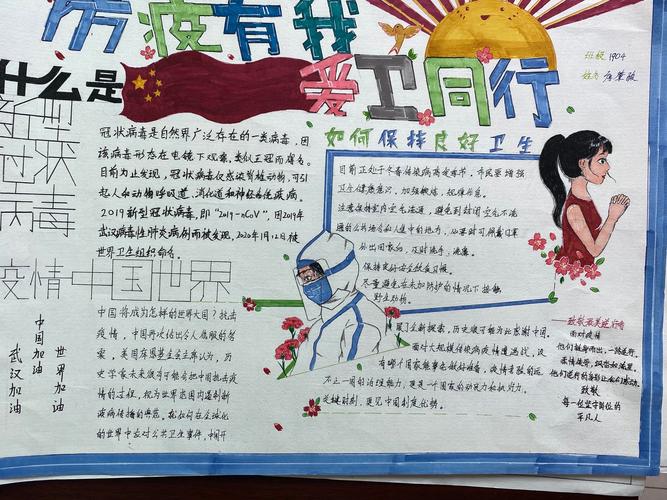 防疫有我
爱卫同行
班级 1904
姓名
什么是
新型
冠状
病毒
冠状病毒是自然界广泛存在的一类病毒，因
该病毒形态在电镜下观察，类似王冠而得名。
目前为止发现，冠状病毒仅感染脊椎动物，可引
起人和动物呼吸道、消化道和神经系统疾病。
2019新型冠状病毒，即"2019-nCoV"，因2019年
武汉病毒性肺炎病例而被发现，2020年1月12日被
世界卫生组织命名。
如何保持良好卫生
目前正处于冬春传染病高发季节，市民要增强
卫生健康意识，加强锻炼，规律作息。
注意保持室内空气流通，避免到封闭空气不流
通的公共场合和人多集中的地方，必要时可佩戴口罩
外出回家后，及时洗手，洗鼻。
保持良好安全饮食习惯。
尽量避免在未加防护的情况下接触
野生动物。
疫情中国世界
中国加油
武汉加油
世界加油
中国将成为怎样的世界大国？抗击
疫情，中国再次给出令人信服的答
案，美国库恩基金会主席认为，历
史学家未来很有可能会把中国抗击疫
情的过程，视为世界范围内遏制新
发病传播的典范，我们何在全球化
的世界中应对公共卫生事件，中国开
展了全新探索，历史很可能为此感谢中国，
面对大规模传染病疫情遭遇战，没
有哪个国家能事先做好准备，疫情考验的远
不止一国的治理能力，更是一个国家的动员力和执行力。
关键时刻，更见中国制度优势。
致敬最美逆行者
面对疫情
他们挺身而出，一路逆行，
致敬
每一位坚守岗位的
平凡人